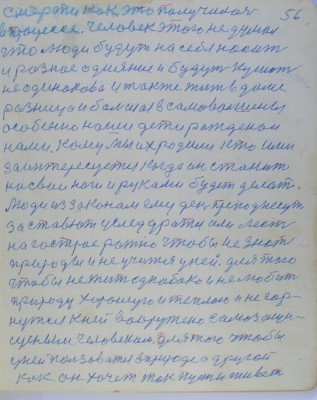 смерти как это получилося 56
в процессе. Человек этого не думал
что люди будут на себя носить
и разное одеяние и будут кушат
не одинаково и также жит в доме
разница и балшая в самоволшении
особенно наши дети рожденои
нами. Кому мы их родили кто ими
заинтересуется когда он станит
на свои ноги и руками будит делат.
Люди из законам ему ден преподнесут
заставют у след драти или лест
на гострае ражно чтобы не знат
природы и не учится у ней. для того
чтобы не жит однобоко и не любит
природу хорошую и теплою и не вер-
нутся к ней вооружено самозащи-
щеным человеком. для того чтобы
у ней ползоватся в природе а другой
как он хочет так пуст и живет